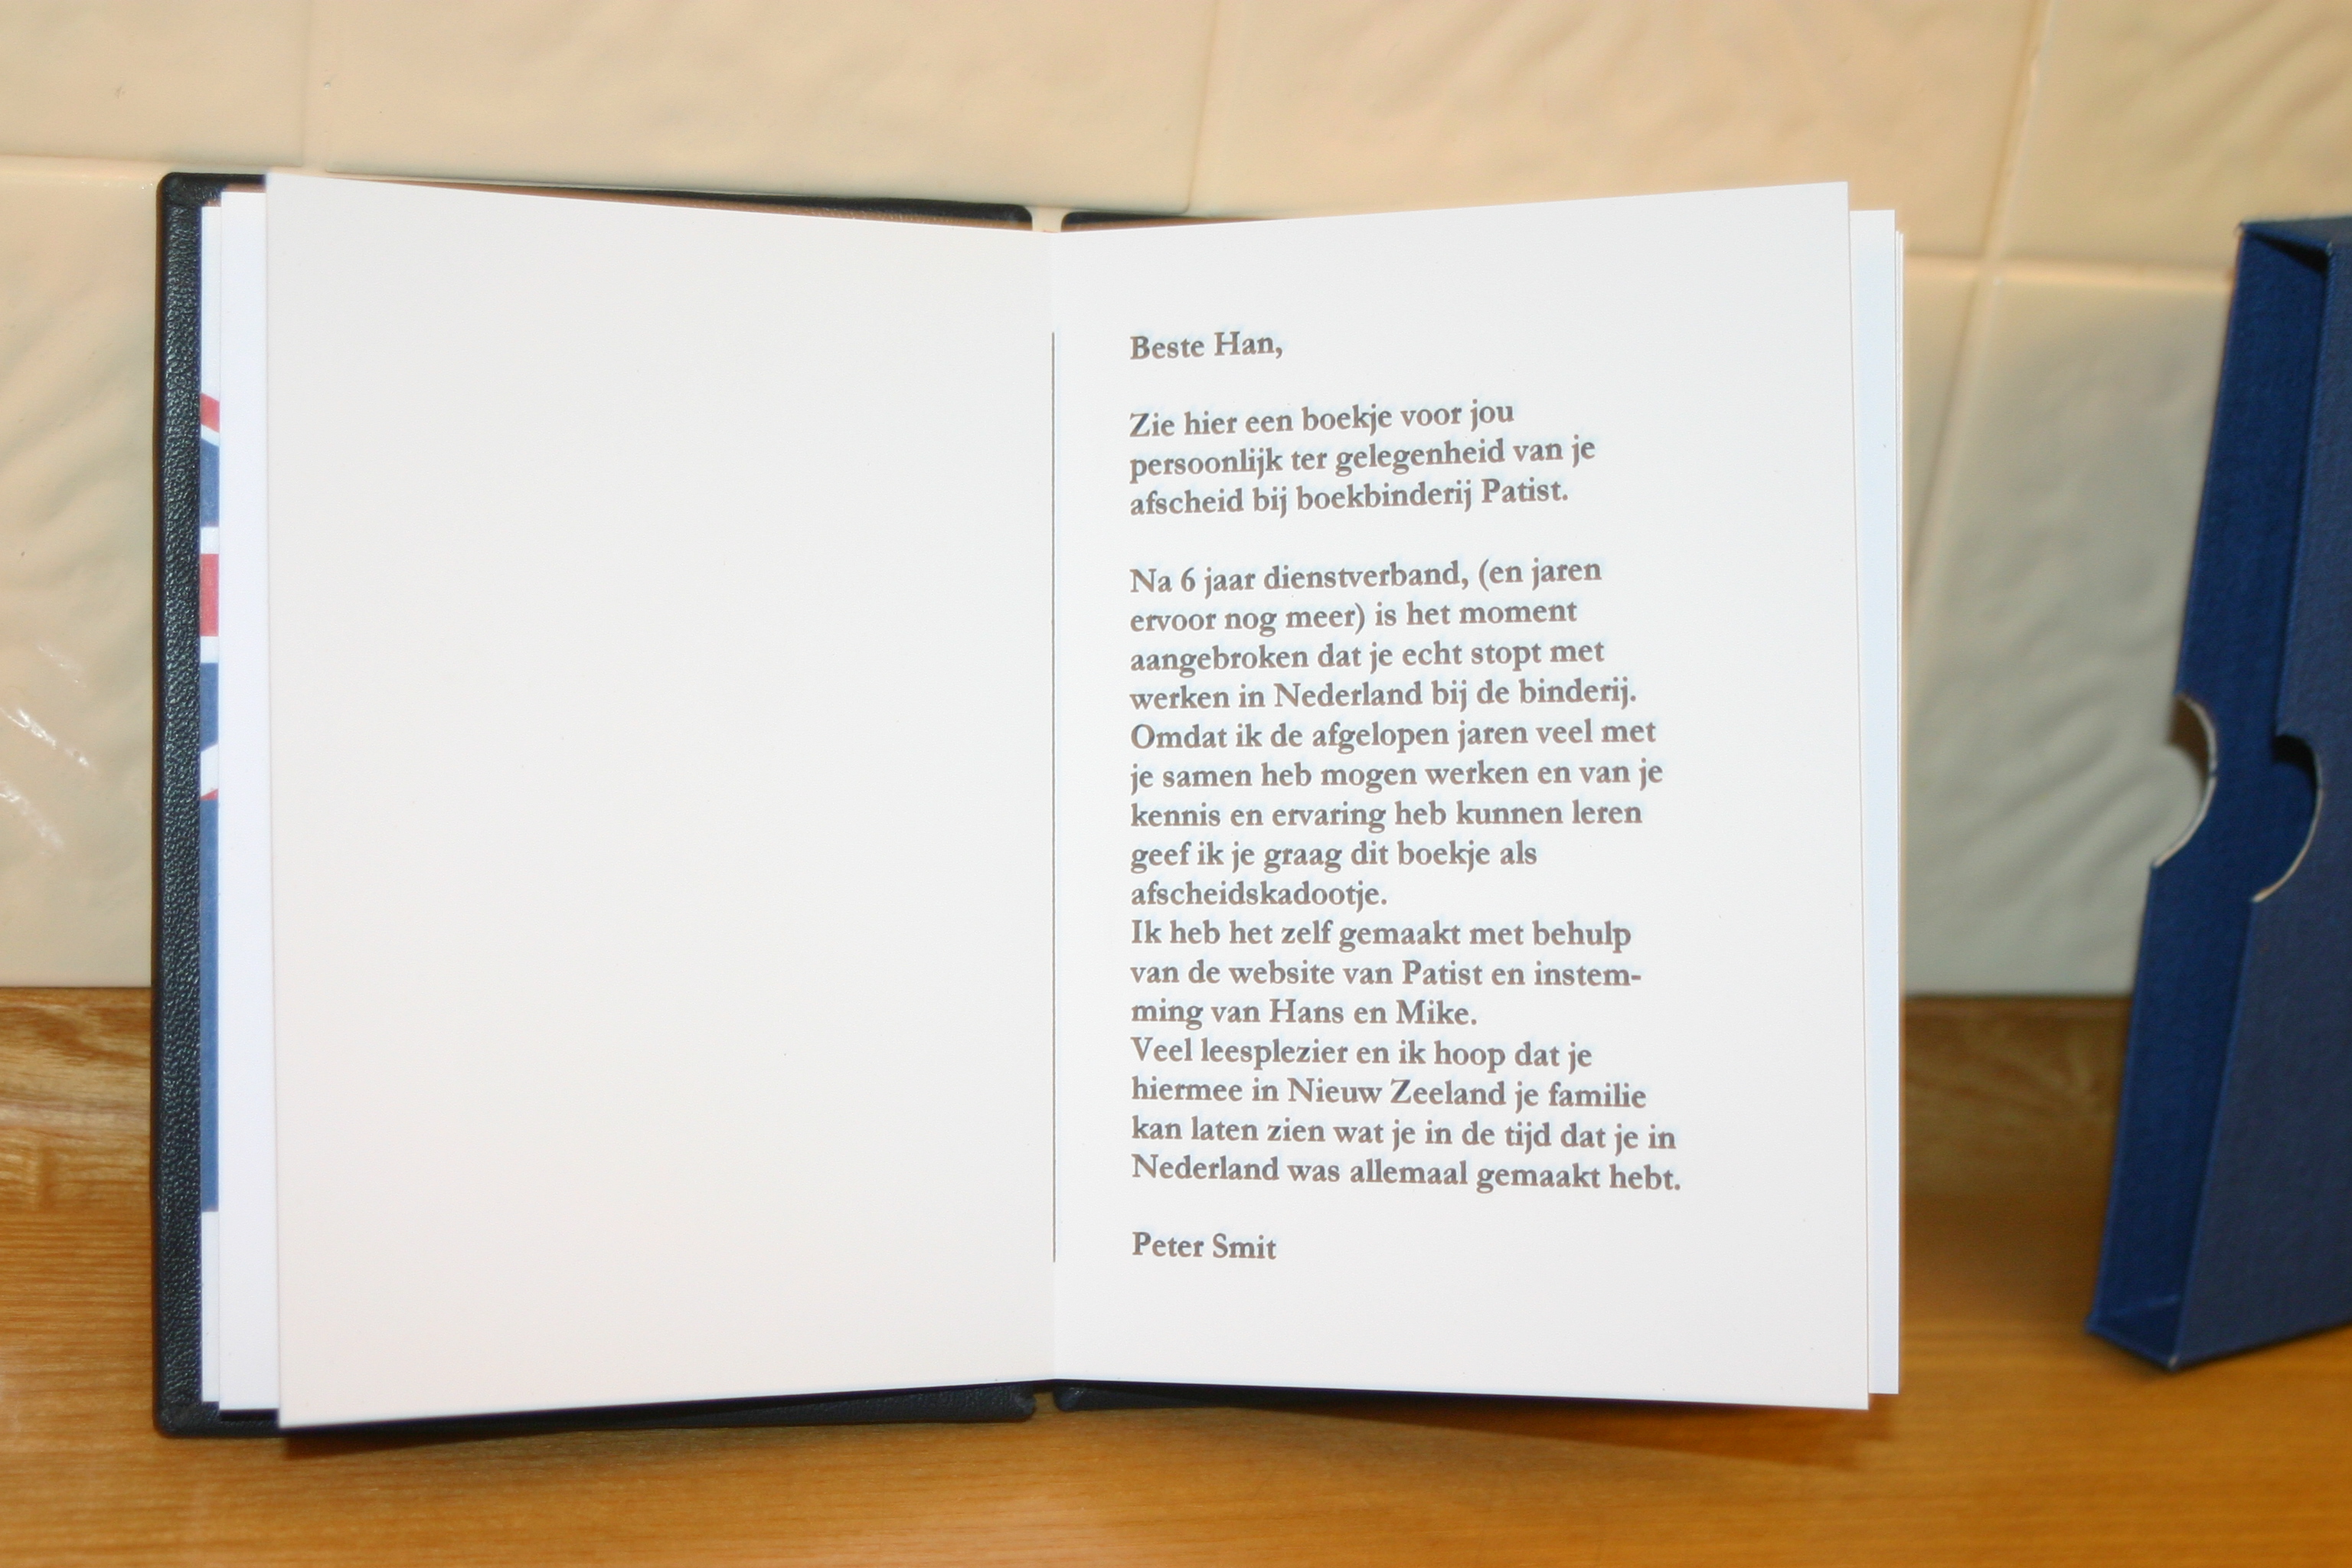 Beste Han,
Zie hier een boekje voor jou
persoonlijk ter gelegenheid van je
afscheid bij boekbinderij Patist.
Na 6 jaar dienstverband, (en jaren
ervoor nog meer) is het moment
aangebroken dat je echt stopt met
werken in Nederland bij de binderij.
Omdat ik de afgelopen jaren veel met
je samen heb mogen werken en van je
kennis en ervaring heb kunnen leren
geef ik je graag dit boekje als
afscheidskadootje.
Ik heb het zelf gemaakt met behulp
van de website van Patist en instem-
ming van Hans en Mike.
Veel leesplezier en ik hoop dat je
hiermee in Nieuw Zeeland je familie
kan laten zien wat je in de tijd dat je in
Nederland was allemaal gemaakt hebt.
Peter Smit